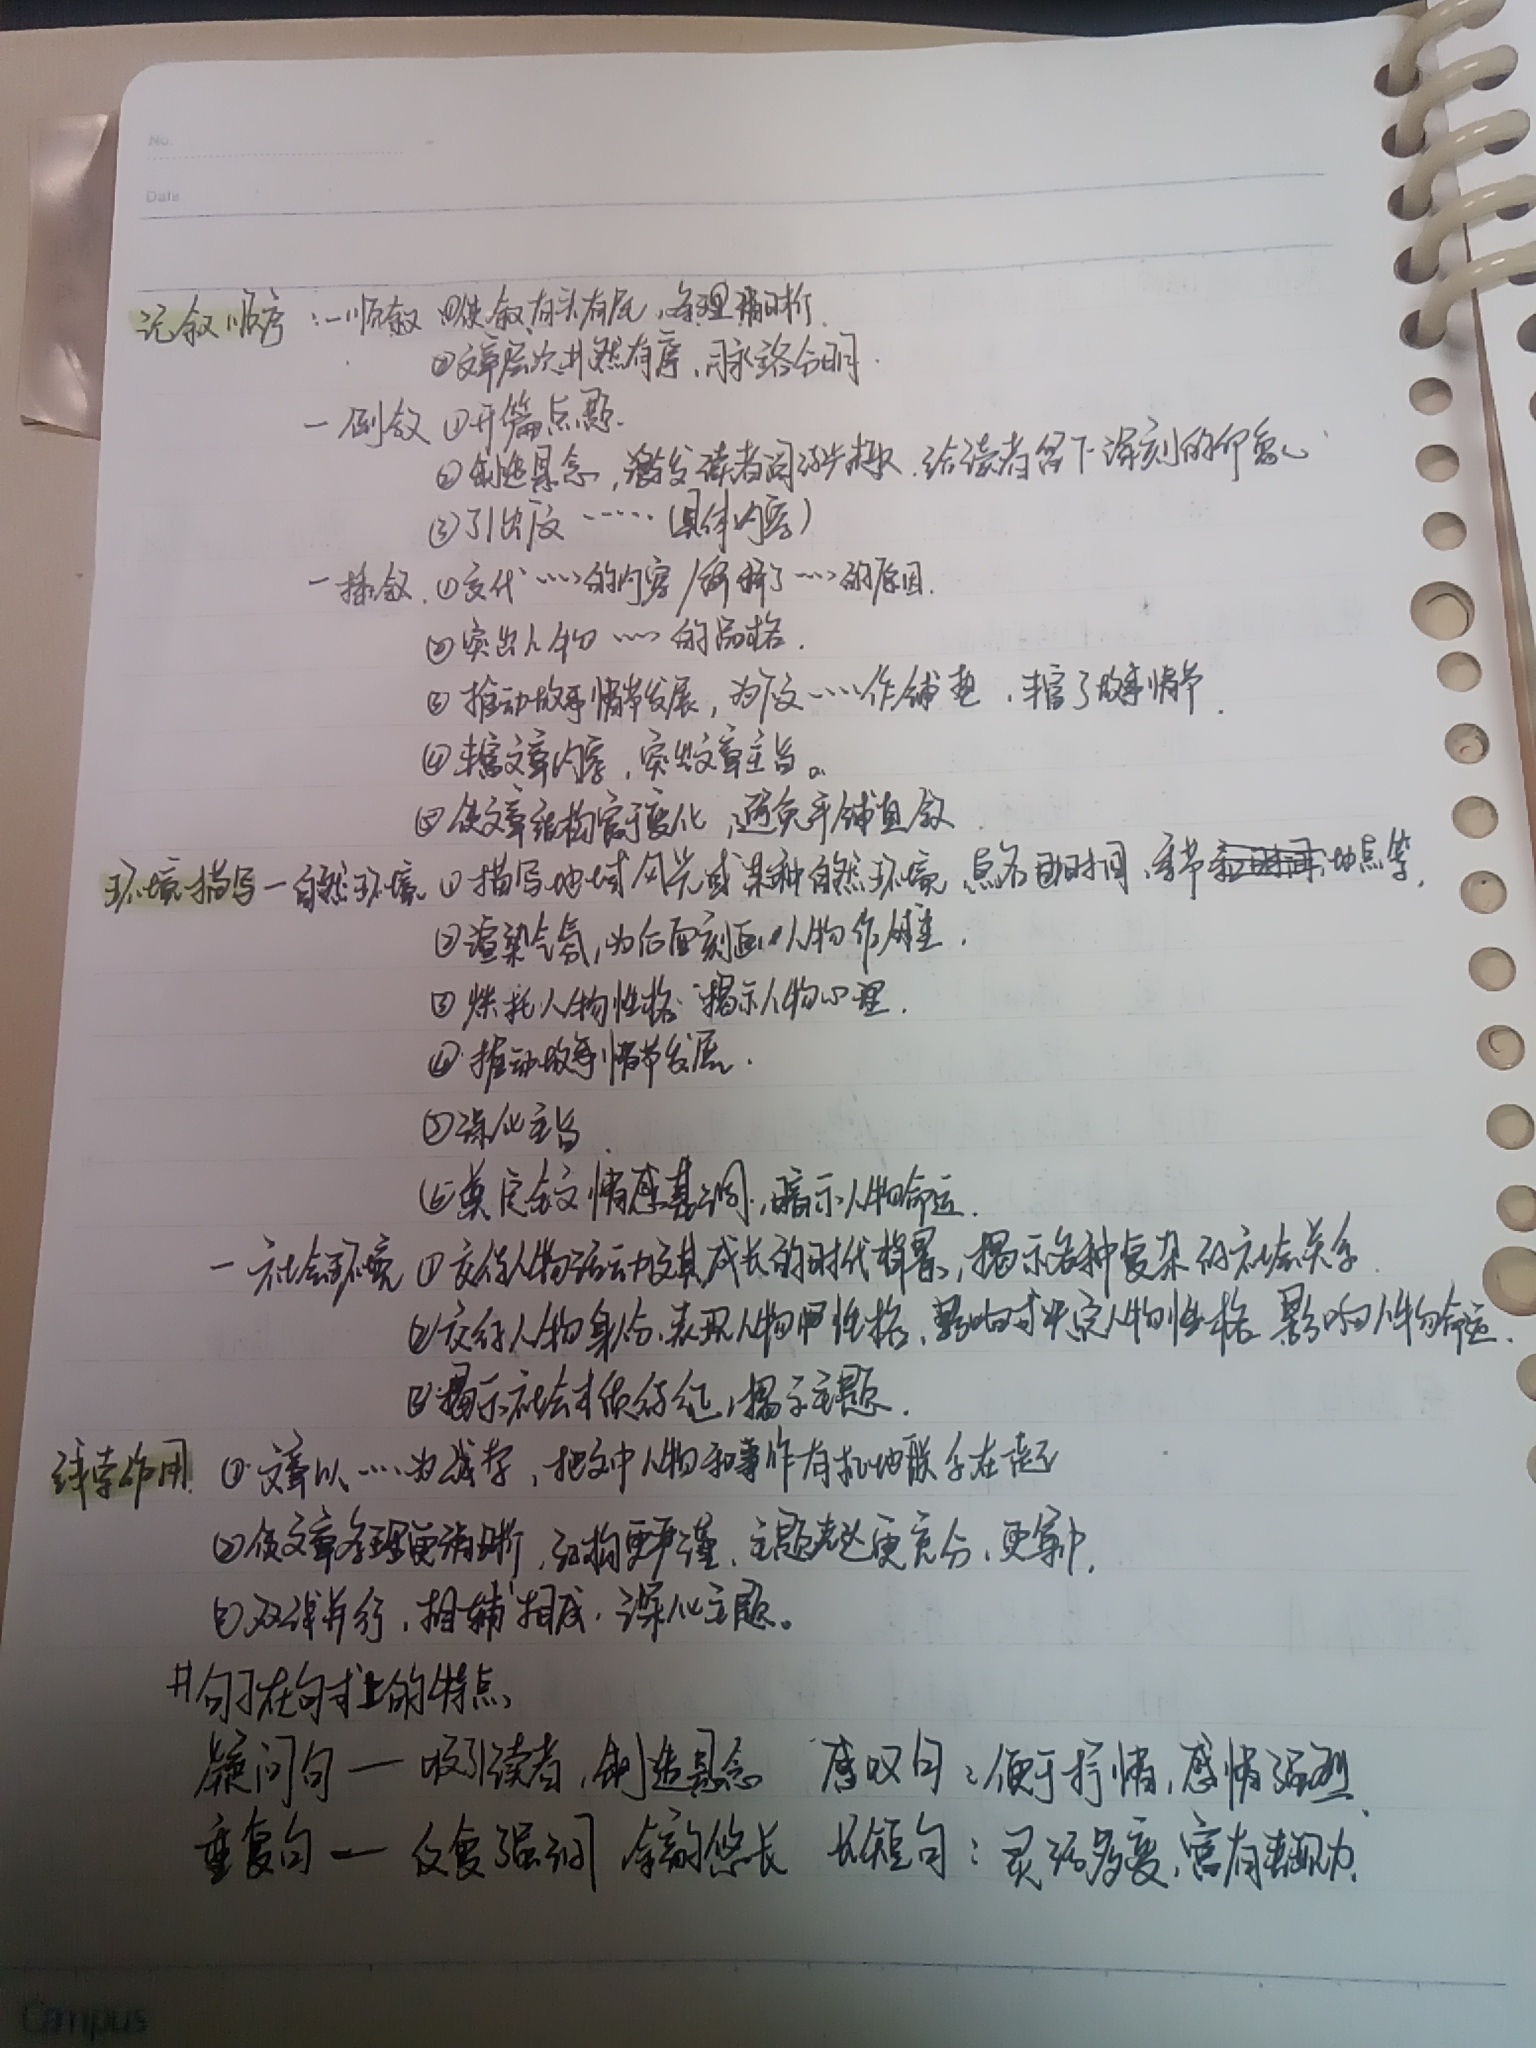 No.
Date
记叙顺序：一顺叙 ①使叙有头有尾，条理清晰.
②文章层次井然有序，脉络分明.
一倒叙 ①开篇点题.
②制造悬念，激发读者阅读兴趣，给读者留下深刻的印象
③引出下文……(具体内容)
一插叙. ①交代……的内容/解释了……的原因.
②突出人物……的品格.
③推动故事情节发展，为下文……作铺垫，丰富了故事情节.
④丰富文章内容，突出文章主旨。
⑤使文章结构富于变化，避免平铺直叙.
环境描写一自然环境 ①描写地域风光或某种自然环境，点名时间，季节，地点等.
②渲染气氛，为后面刻画人物作铺垫.
③烘托人物性格 揭示人物心理.
④推动故事情节发展.
⑤深化主旨.
⑥奠定全文情感基调，暗示人物命运.
一社会环境 ①交待人物活动及其成长的时代背景，揭示各种复杂的社会关系.
②交待人物身份，表现人物性格，影响或决定人物性格 影响人物命运.
③揭示社会本质特征，揭示主题.
线索作用 ①文章以……为线索，把文中人物和事件有机地联系在一起
②使文章条理更清晰，结构更严谨，主题表达更充分，更集中.
③双线并行，相辅相成，深化主题。
#句子在句式上的特点.
疑问句一吸引读者，制造悬念 感叹句：便于抒情，感情强烈.
重复句一反复强调 余韵悠长 长短句：灵活多变，富有表现力.
Campus